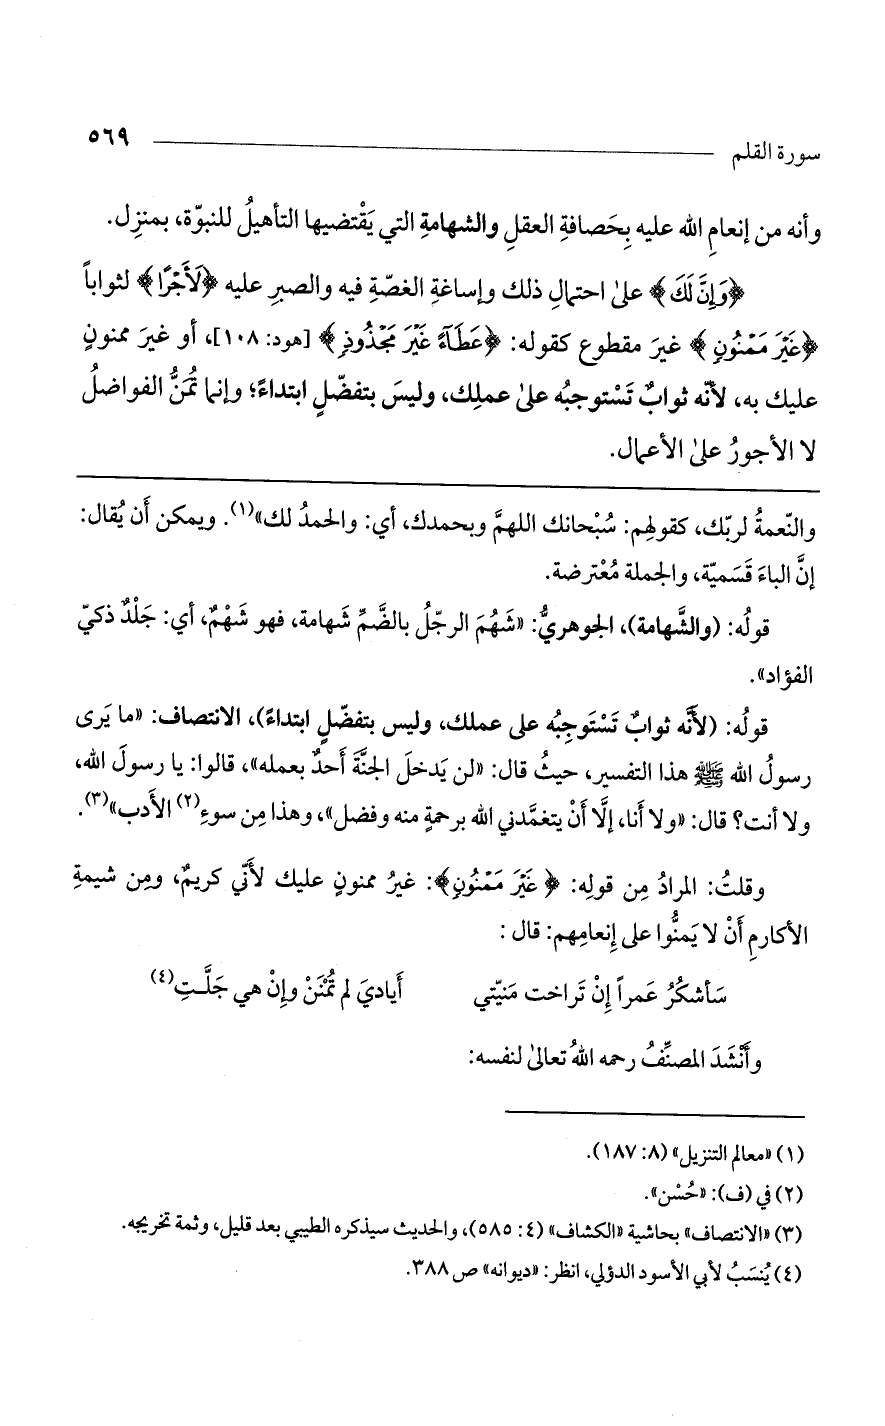 سورة القلم ٥٦٩
وأنه من إنعامِ الله عليه بِحَصافةِ العقلِ والشهامةِ التي يَقْتضيها التأهيلُ للنبوّة، بمنزِل.
﴿وَإِنَّ لَكَ﴾ علىٰ احتمالِ ذلك وإساغةِ الغصّةِ فيه والصبرِ عليه ﴿لَأَجْرًا﴾ لثواباً
﴿غَيْرَ مَمْنُونٍ﴾ غيرَ مقطوع كقوله: ﴿عَطَآءً غَيْرَ مَجْذُوذٍ﴾ [هود: ١٠٨]، أو غيرَ ممنونٍ
عليك به، لأنّه ثوابٌ تَسْتوجبُه علىٰ عملِك، وليسَ بتفضّلٍ ابتداءً؛ وإنما تُمَنُّ الفواضلُ
لا الأجورُ علىٰ الأعمال.
والنّعمةُ لربّك، كقولهِم: سُبْحانك اللهمَّ وبحمدك، أي: والحمدُ لك»(١). ويمكن أن يُقال:
إنَّ الباءَ قَسَميّة، والجملة مُعْترضة.
قولُه: (والشَّهامة)، الجوهريُّ: «شَهُمَ الرجّلُ بالضَّمِّ شَهامة، فهو شَهْمٌ، أي: جَلْدٌ ذكيّ
الفؤاد».
قولُه: (لأنَّه ثوابٌ تَسْتَوجِبُه على عملك، وليس بتفضّلٍ ابتداءً)، الانتصاف: «ما يَرى
رسولُ الله ﷺ هذا التفسير، حيثُ قال: «لن يَدخلَ الجنَّةَ أَحدٌ بعمله»، قالوا: يا رسولَ الله،
ولا أنت؟ قال: «ولا أنا، إلَّا أنْ يتغمَّدني الله برحمةٍ منه وفضل»، وهذا مِن سوءِ(٢) الأَدب»(٣).
وقلتُ: المرادُ مِن قولِه: ﴿غَيْرَ مَمْنُونٍ﴾: غيرُ ممنونٍ عليك لأنّي كريمٌ، ومِن شيمةِ
الأكارمِ أَنْ لا يَمنُّوا على إنعامِهم: قال:
سَأشكُرُ عَمراً إنْ تَراخت مَنيّتي أَياديَ لم تُمْنَنْ وإنْ هي جَلَّـتِ(٤)
وأَنْشَدَ المصنِّفُ رحمه اللهُ تعالىٰ لنفسه:
(١) «معالم التنزيل» (٨: ١٨٧).
(٢) في (ف): «حُسْن».
(٣) «الانتصاف» بحاشية «الكشاف» (٤: ٥٨٥)، والحديث سيذكره الطيبي بعد قليل، وثمة تخريجه.
(٤) يُنسَبُ لأبي الأسود الدؤلي، انظر: «ديوانه» ص ٣٨٨.